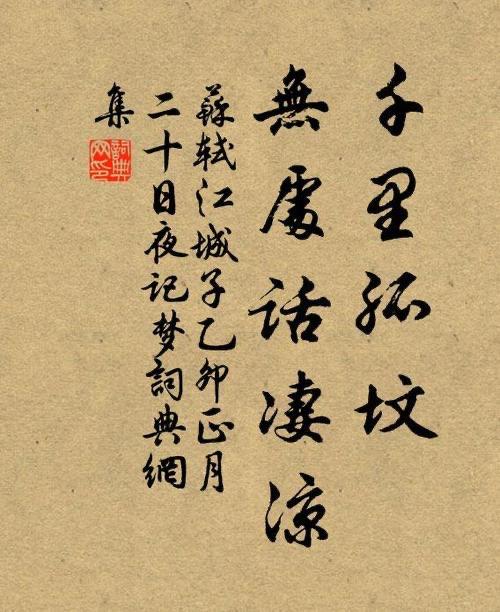 千里孤坟
無處話凄涼
蘇軾江城子乙卯正月
二十日夜记梦詞典網
集
詞典网印